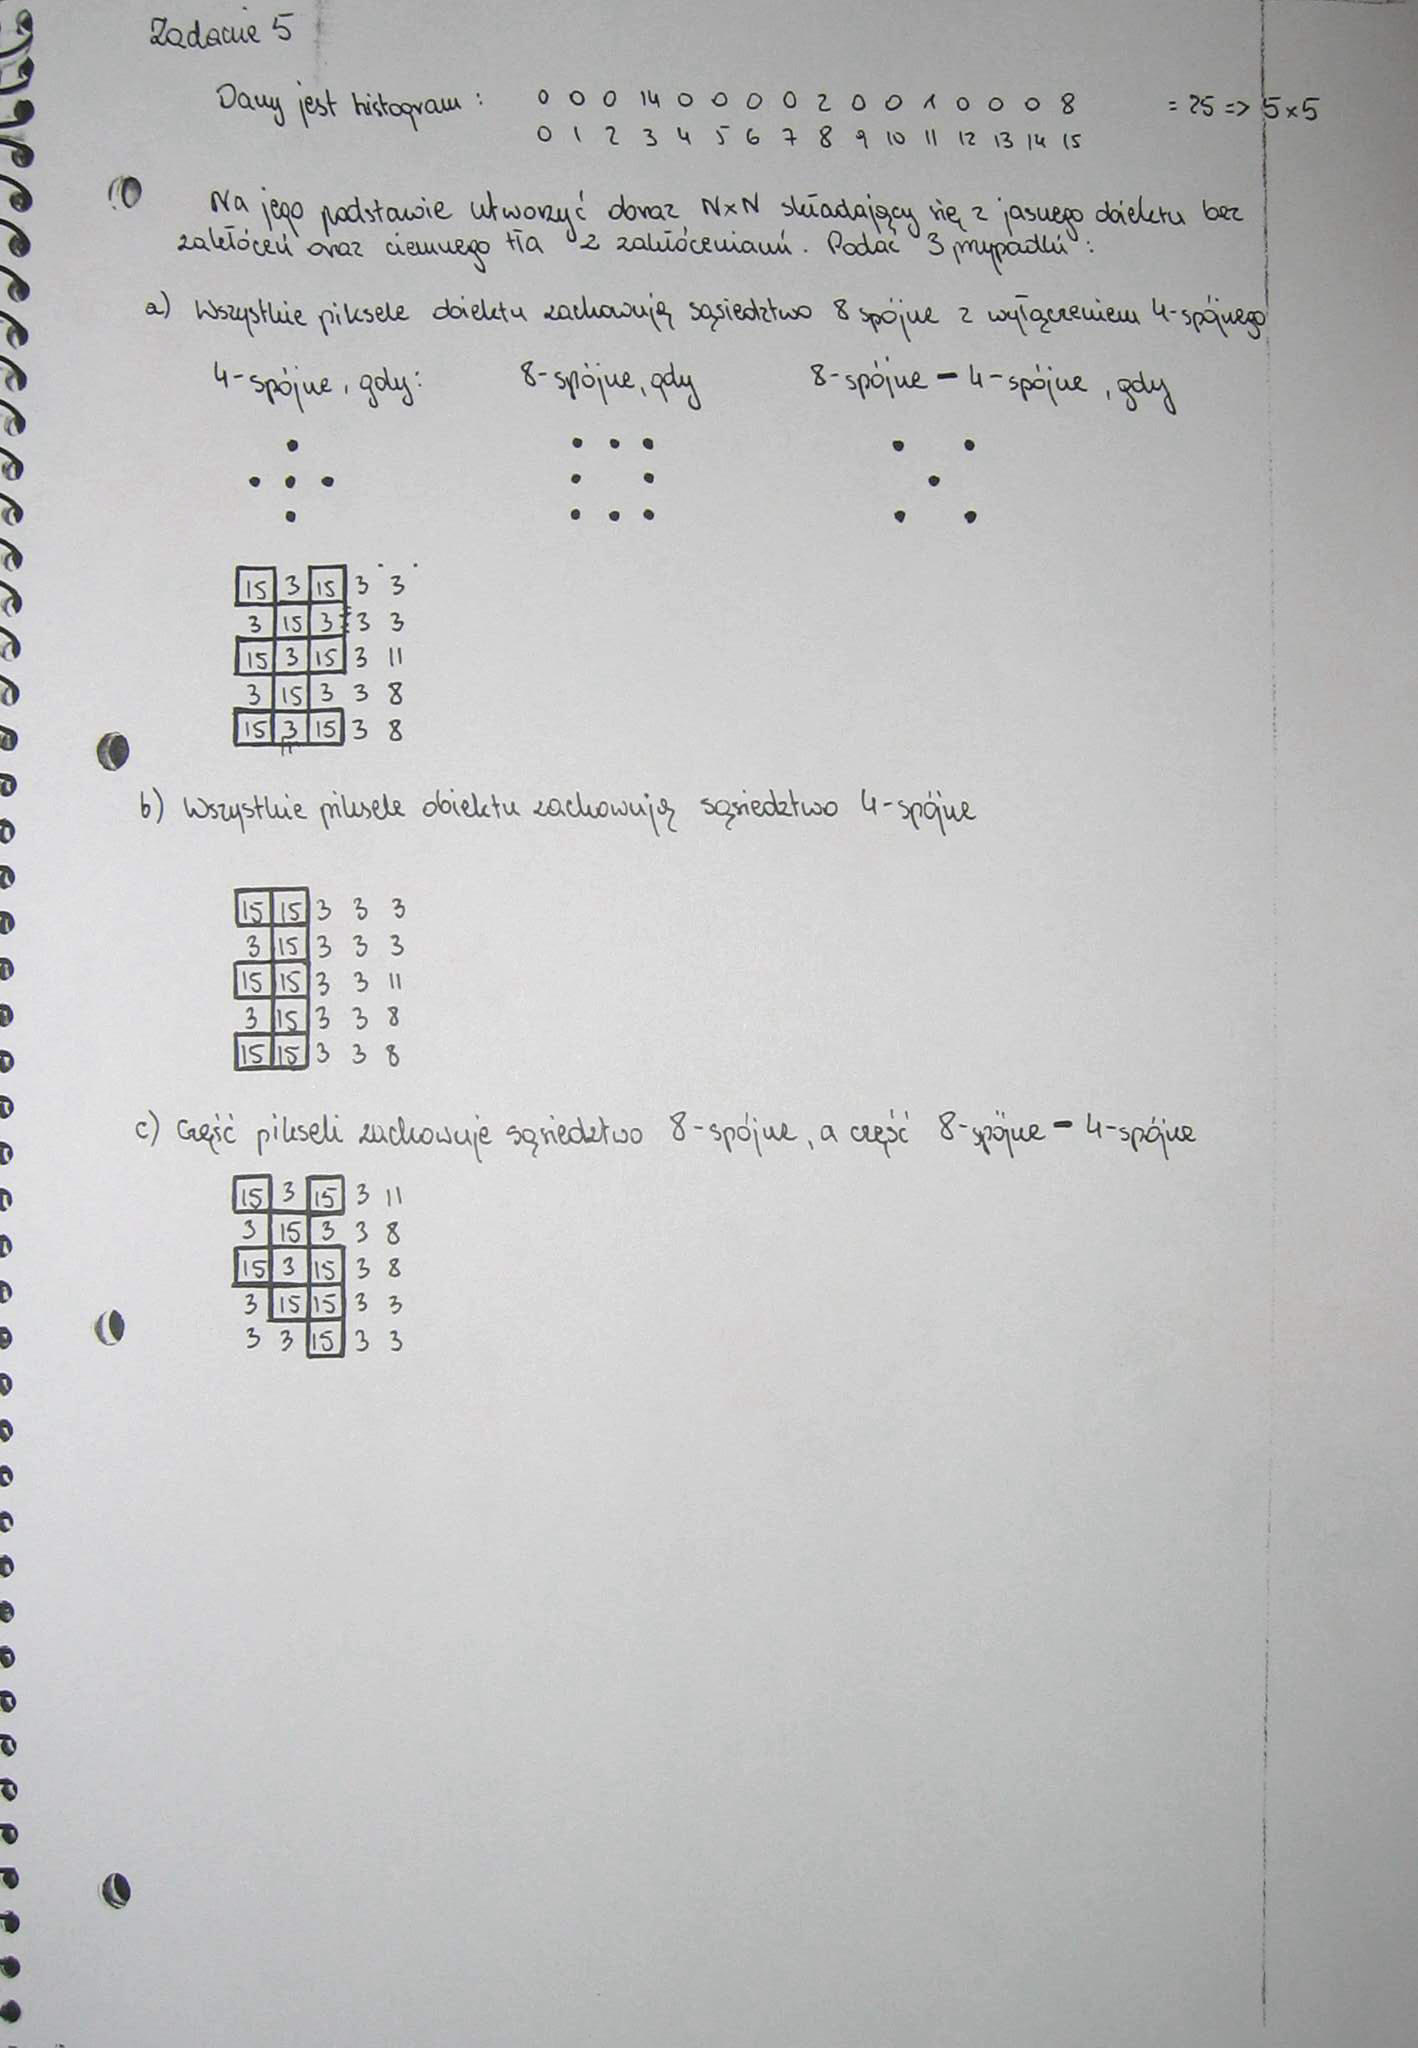 Zadanie 5
Dany jest histogram : 0 0 0 14 0 0 0 0 2 0 0 1 0 0 0 8 = 25 => 5x5
0 1 2 3 4 5 6 7 8 9 10 11 12 13 14 15
Na jego podstawie utworzyć obraz NxN składający się z jasnego obiektu bez
zakłóceń oraz ciemnego tła z zakłóceniami. Podać 3 przypadki :
a) Wszystkie piksele obiektu zachowują sąsiedztwo 8 spójne z wyłączeniem 4-spójnego
4-spójne, gdy: 8-spójne, gdy 8-spójne - 4-spójne, gdy
15 3 15 3 3
3 15 3 3 3
15 3 15 3 11
3 15 3 3 8
15 3 15 3 8
b) Wszystkie piksele obiektu zachowują sąsiedztwo 4-spójne
15 15 3 3 3
3 15 3 3 3
15 15 3 3 11
3 15 3 3 8
15 15 3 3 8
c) Część pikseli zachowuje sąsiedztwo 8-spójne, a część 8-spójne - 4-spójne
15 3 15 3 11
3 15 3 3 8
15 3 15 3 8
3 15 15 3 3
3 3 15 3 3